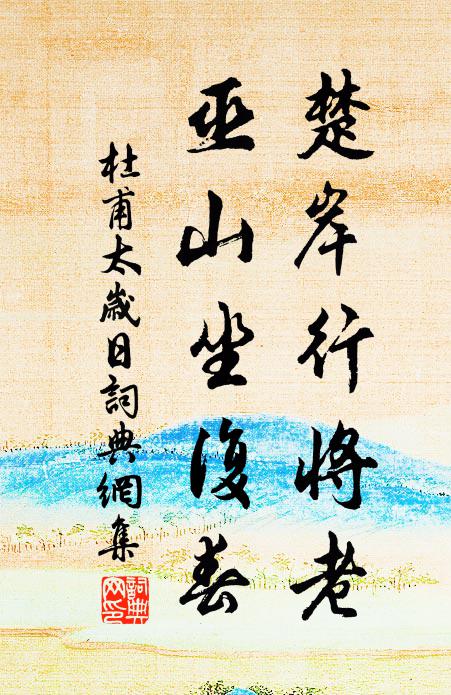 楚岸行將老
巫山坐復春
杜甫太歲日詞典網集
詞典網印